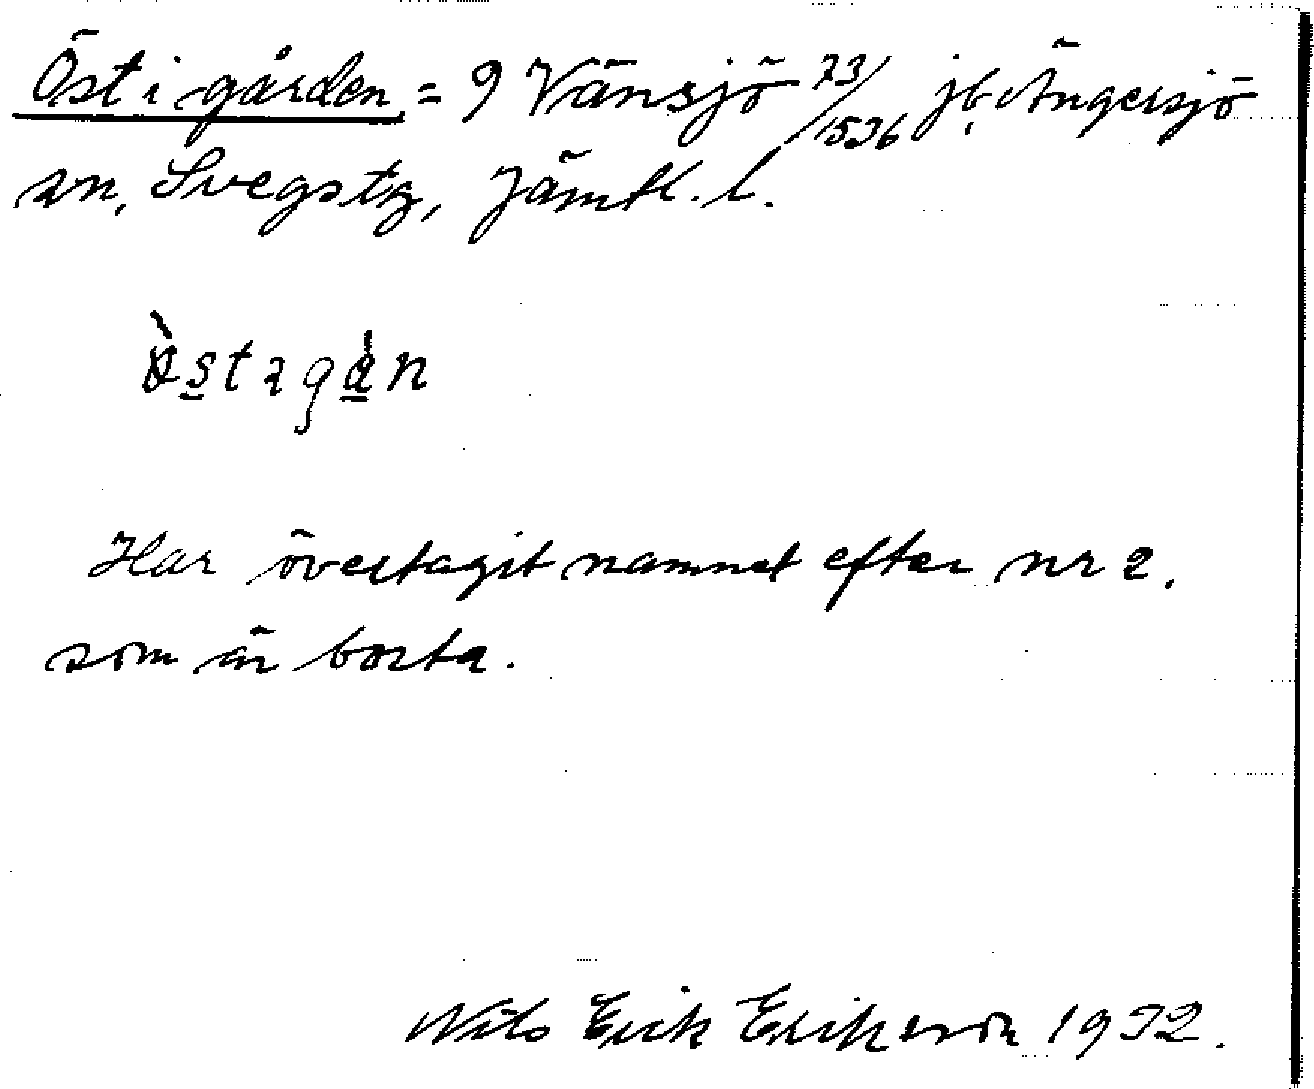 Öst i gården = 9 Vänsjö 73/1536 jb, Ängersjö
sn, Svegs tg, Jämtl. l.
Har övertagit namnet efter nr 2,
som är borta.
Nils Erik Eriksson 1932.